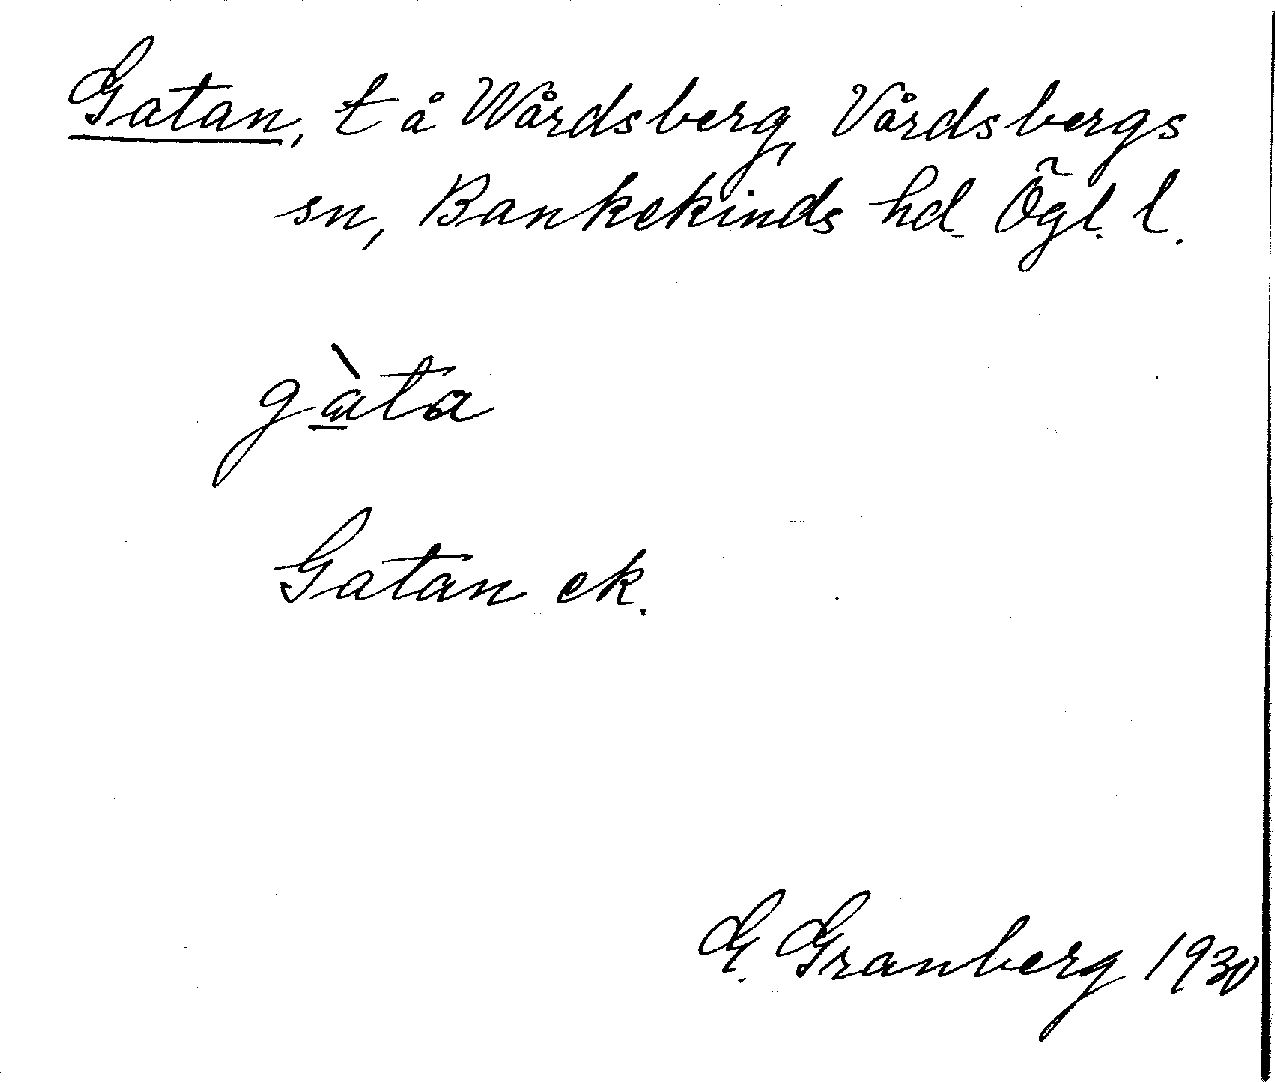 Gatan, t å Wårdsberg, Vårdsbergs
sn, Bankekinds hd. Ögl. l.
gàta
Gatan ek.
G. Granberg 1930